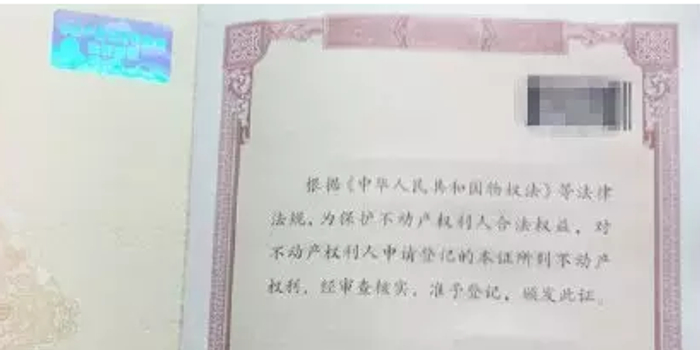 根据《中华人民共和国物权法》等法律
法规，为保护不动产权利人合法权益，对
不动产权利人申请登记的本证所列不动产
权利，经审查核实，准予登记，颁发此证。